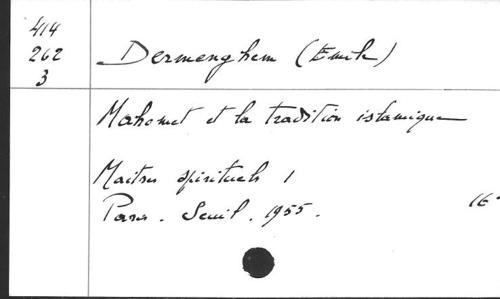 414
262
3
Dermenghem (Emile)
Mahomet et la tradition islamique
Maitres spirituels 1
Paris. Seuil. 1955. 16°